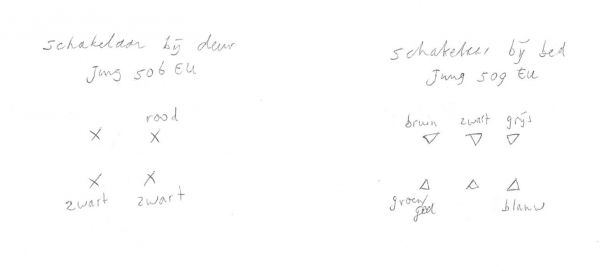 schakelaar bij deur
Jung 506 EU
rood
zwart zwart
schakelaar bij bed
Jung 509 EU
bruin zwart grijs
groen/
geel
blauw